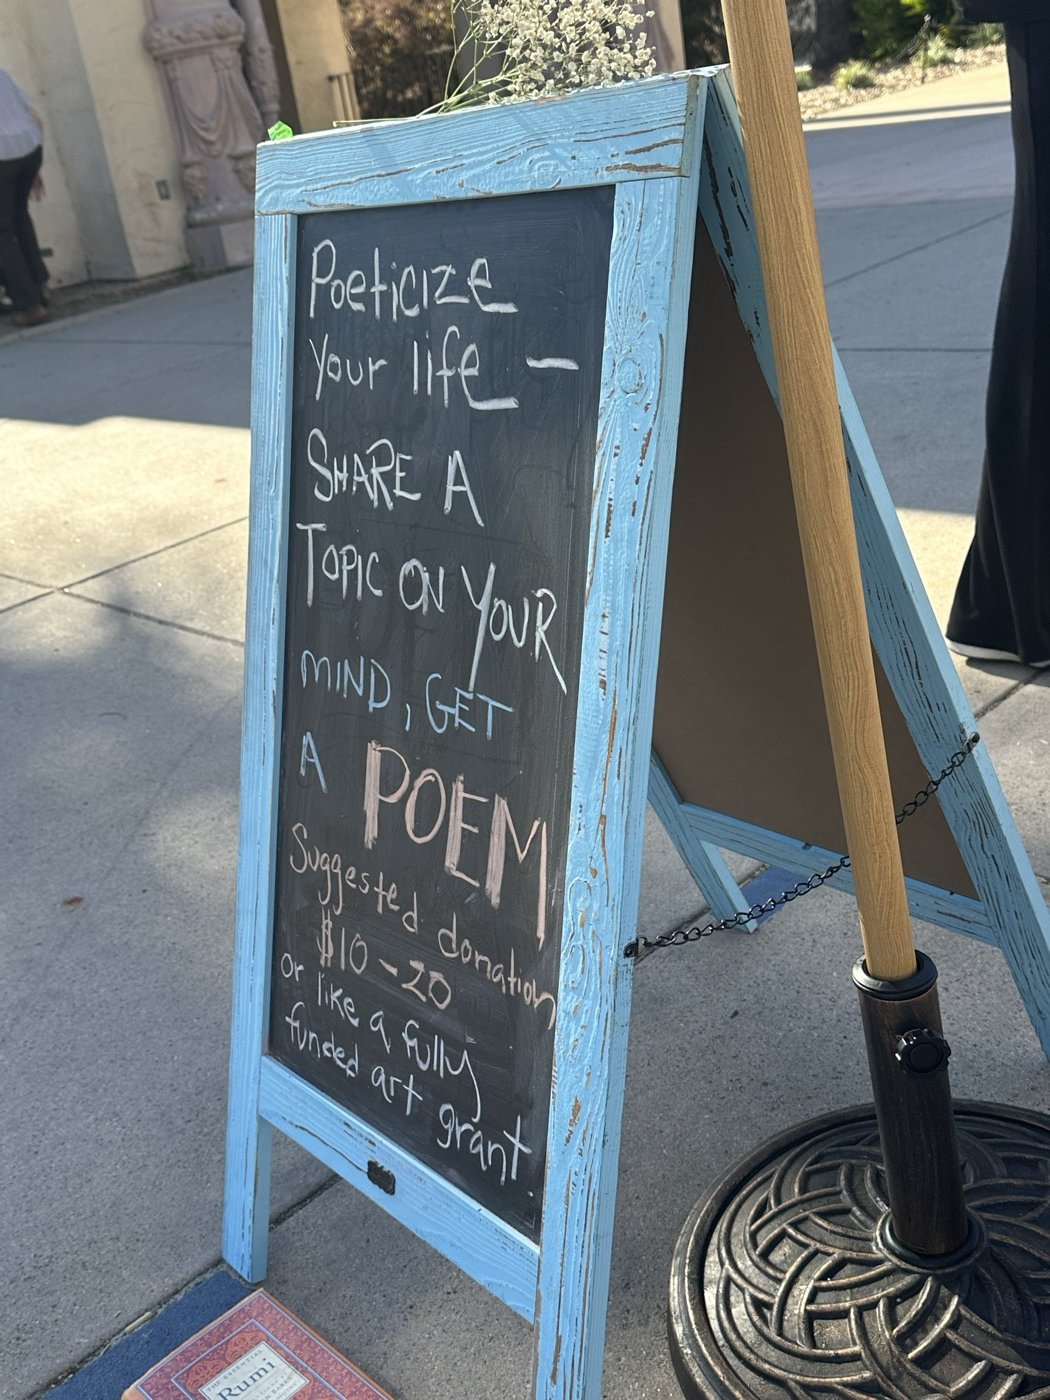 Poeticize
your life —
SHARE A
TOPIC ON YOUR
MIND, GET
A POEM
Suggested donation
$10-20
or like a fully
funded art grant.
THE ESSENTIAL
Rumi